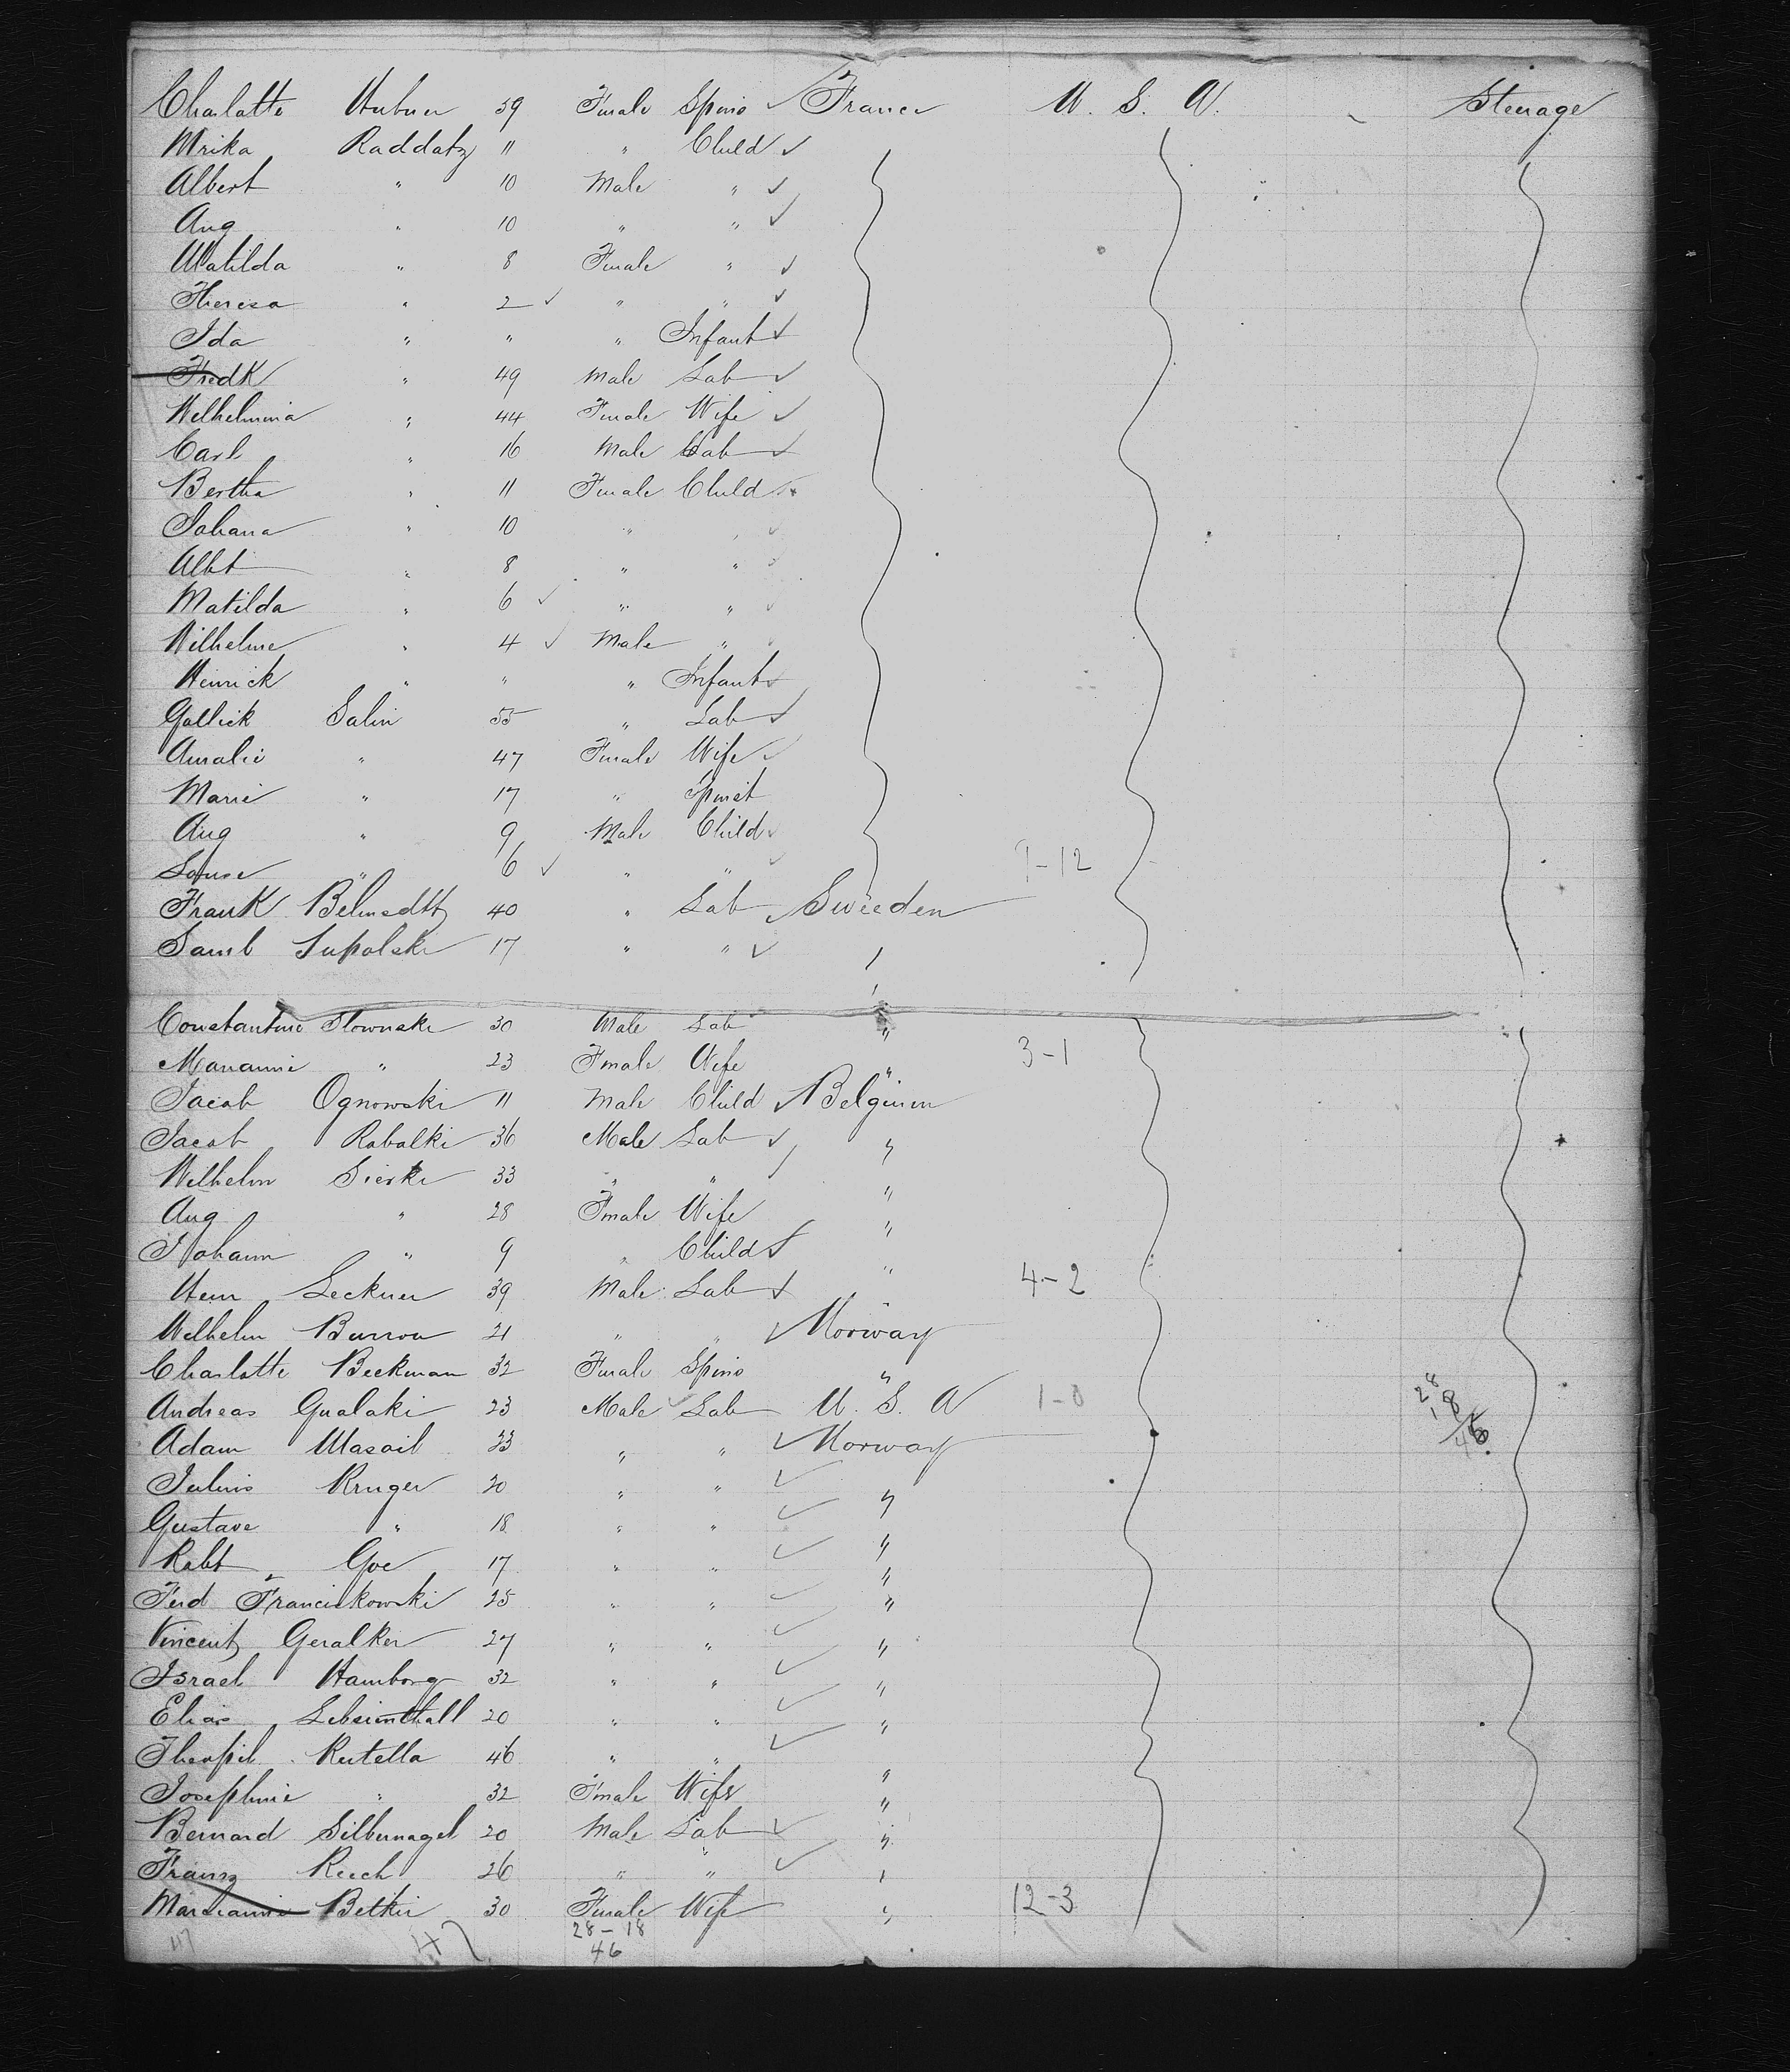 Charlotte Hubner 39 Female Spins ✓ France U. S. A. Steerage
Mrika Raddatz 11 " Child ✓
Albert " 10 Male " ✓
Aug " 10 " " ✓
Matilda " 8 Female " ✓
Theresa " 2 ✓ " " ✓
Ida " " " Infant ✓
Fredk " 49 Male Lab ✓
Wilhelmina " 44 Female Wife ✓
Carl " 16 Male Lab ✓
Bertha " 11 Female Child
Johana " 10 " " ✓
Albt " 8 " " ✓
Matilda " 6 ✓ " " ✓
Wilhelme " 4 ✓ Male " ✓
Heinrick " " " Infant ✓
Gollick Salin 55 " Lab ✓
Amalie " 47 Female Wife ✓
Marie " 17 " Spinst
Aug " 9 Male Child ✓
Louse " 6 ✓ " " ✓ 9-12
Frank 40 " Lab ✓ Sweeden
17 " " ✓
Constantine Slownske 30 Male Lab "
Marianne " 23 Female Wife " 3-1
Jacob Ognowski 11 Male Child ✓ Belguim
Jacob Rabalki 36 Male Lab ✓ "
Wilhelm Sierke 33 " " "
Aug " 28 Female Wife "
Johann " 9 " Child ✓ "
Hein Leckner 39 Male Lab ✓ " 4-2
Wilhelm Burrow 21 " " ✓ Norway
Charlotte Beckman 32 Female Spins "
Andreas Gualaki 23 Male ✓ Lab U. S. A 1-0 28
18
46
Adam Masail 23 " " ✓ Norway
Julius Kruger 20 " " ✓ "
Gustave " 18 " " ✓ "
Robt Goe 17 " " ✓ "
Ferd Franciskowski 25 " " ✓ "
Vincentz Geralker 27 " " ✓ "
Israel Hamborg 32 " " ✓ "
Elias 20 " " ✓ "
Theopil Rutella 46 " " ✓ "
Josephine " 32 Female Wife "
Bernard Silbernagel 20 Male Lab ✓ "
Franz Reech 26 " " ✓ "
Marianne Betkie 30 Female Wife " 12-3
47 47 28-18
46